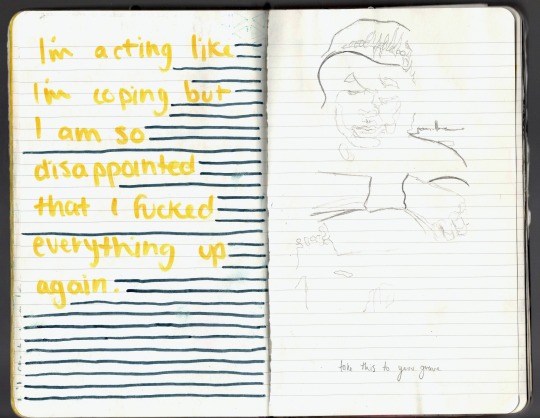 I'm acting like
I'm coping but
I am so
disappointed
that I fucked
everything up
again.
take this to your grave